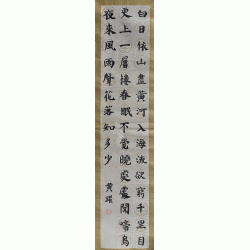 白日依山盡黃河入海流欲窮千里目
更上一層樓春眠不覺曉處處聞啼鳥
夜來風雨聲花落知多少